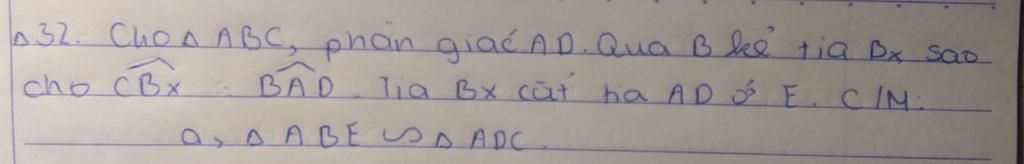 Δ32. Cho Δ ABC, phân giác AD. Qua B kẻ tia Bx sao
cho CBx = BAD. Tia Bx cắt tia AD ở E. C/M:
a, Δ ABE ∽ Δ ADC.